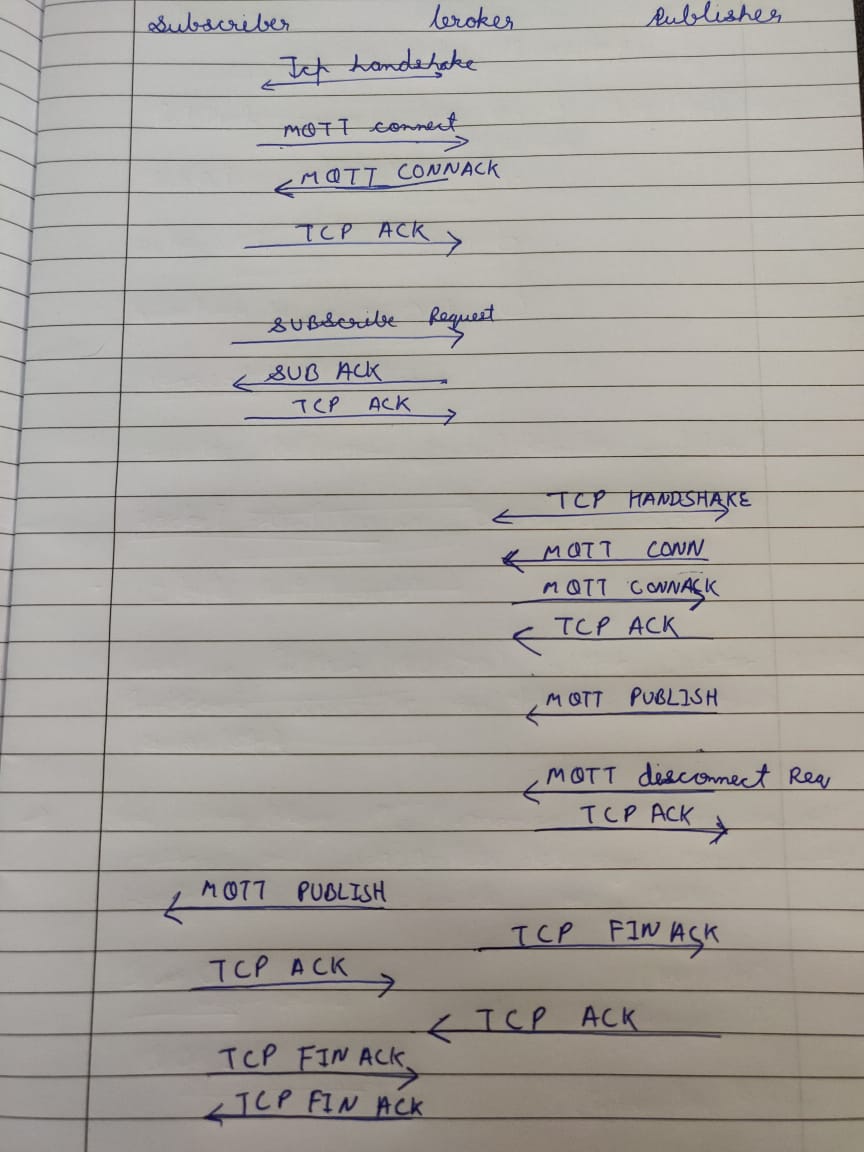 Subscriber broker Publisher
Tcp handshake
MQTT connect
MQTT CONNACK
TCP ACK
SUBScribe Request
SUB ACK
TCP ACK
TCP HANDSHAKE
MQTT CONN
MQTT CONNACK
TCP ACK
MQTT PUBLISH
MQTT disconnect Req
TCP ACK
MQTT PUBLISH
TCP FIN ACK
TCP ACK
TCP ACK
TCP FIN ACK
TCP FIN ACK